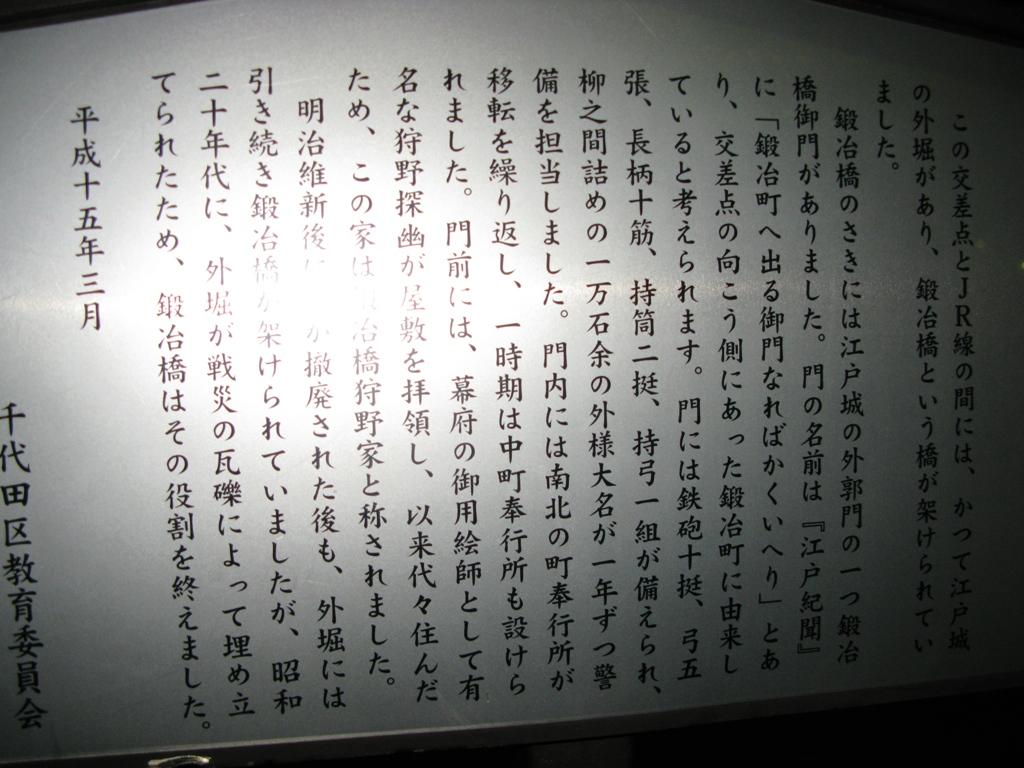 この交差点とJR線の間には、かつて江戸城
の外堀があり、鍛冶橋という橋が架けられてい
ました。
鍛冶橋のさきには江戸城の外郭門の一つ鍛冶
橋御門がありました。門の名前は『江戸紀聞』
に「鍛冶町へ出る御門なればかくいへり」とあ
り、交差点の向こう側にあった鍛冶町に由来し
ていると考えられます。門には鉄砲十挺、弓五
張、長柄十筋、持筒二挺、持弓一組が備えられ、
柳之間詰めの一万石余の外様大名が一年ずつ警
備を担当しました。門内には南北の町奉行所が
移転を繰り返し、一時期は中町奉行所も設けら
れました。門前には、幕府の御用絵師として有
名な狩野探幽が屋敷を拝領し、以来代々住んだ
ため、この家は冶橋狩野家と称されました。
明治維新後に が撤廃された後も、外堀には
引き続き鍛冶橋が架けられていましたが、昭和
二十年代に、外堀が戦災の瓦礫によって埋め立
てられたため、鍛冶橋はその役割を終えました。
平成十五年三月
千代田区教育委員会